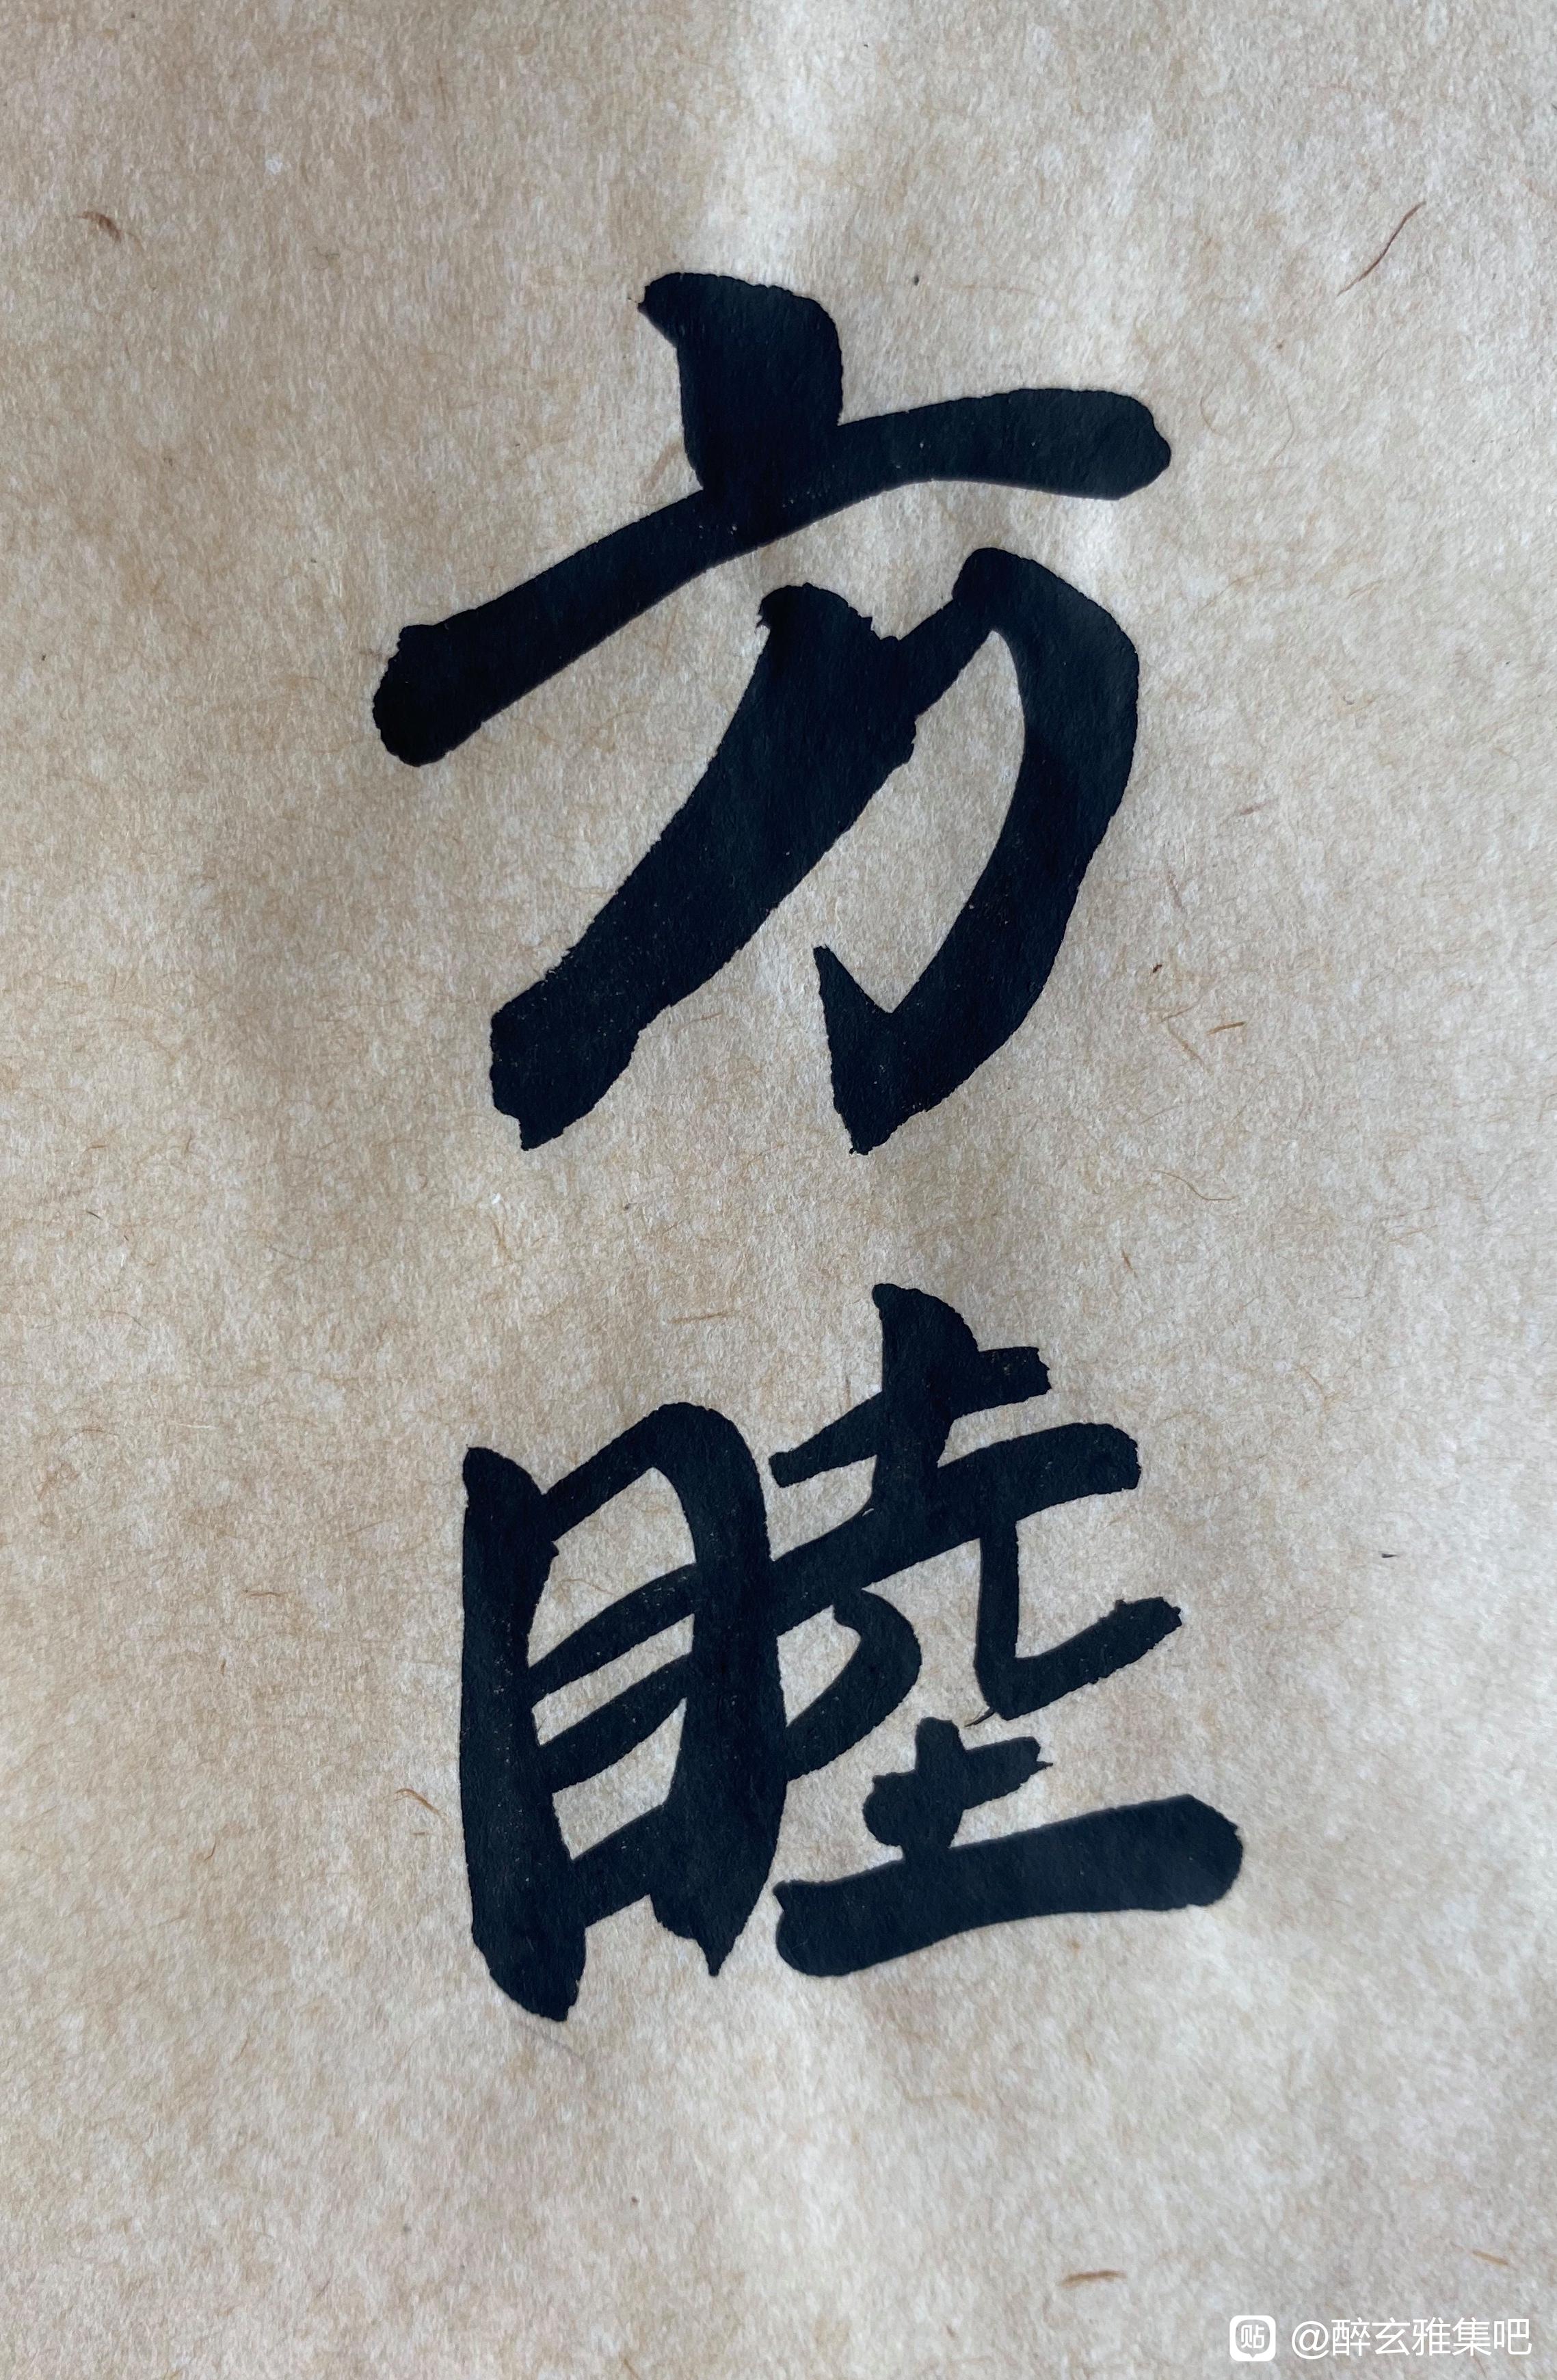 方睦
贴 @醉玄雅集吧